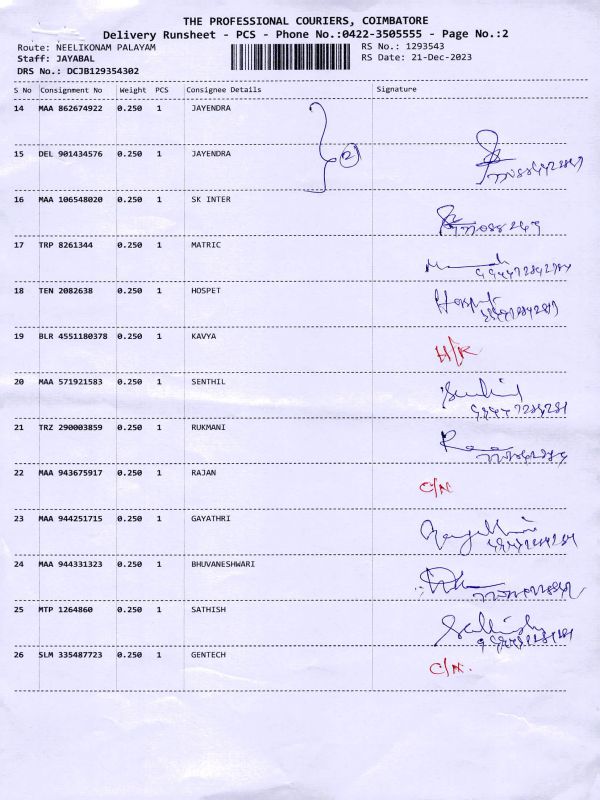 THE PROFESSIONAL COURIERS, COIMBATORE
Delivery Runsheet - PCS - Phone No.:0422-3505555 - Page No.:2
Route: NEELIKONAM PALAYAM RS No.: 1293543
Staff: JAYABAL RS Date: 21-Dec-2023
DRS No.: DCJB129354302
S No Consignment No Weight PCS Consignee Details Signature
14 MAA 862674922 0.250 1 JAYENDRA
15 DEL 901434576 0.250 1 JAYENDRA
2
16 MAA 106548020 0.250 1 SK INTER
17 TRP 8261344 0.250 1 MATRIC
18 TEN 2082638 0.250 1 HOSPET
19 BLR 4551180378 0.250 1 KAVYA
20 MAA 571921583 0.250 1 SENTHIL
21 TRZ 290003859 0.250 1 RUKMANI
22 MAA 943675917 0.250 1 RAJAN C/N
23 MAA 944251715 0.250 1 GAYATHRI
24 MAA 944331323 0.250 1 BHUVANESHWARI
25 MTP 1264860 0.250 1 SATHISH
26 SLM 335487723 0.250 1 GENTECH C/N.